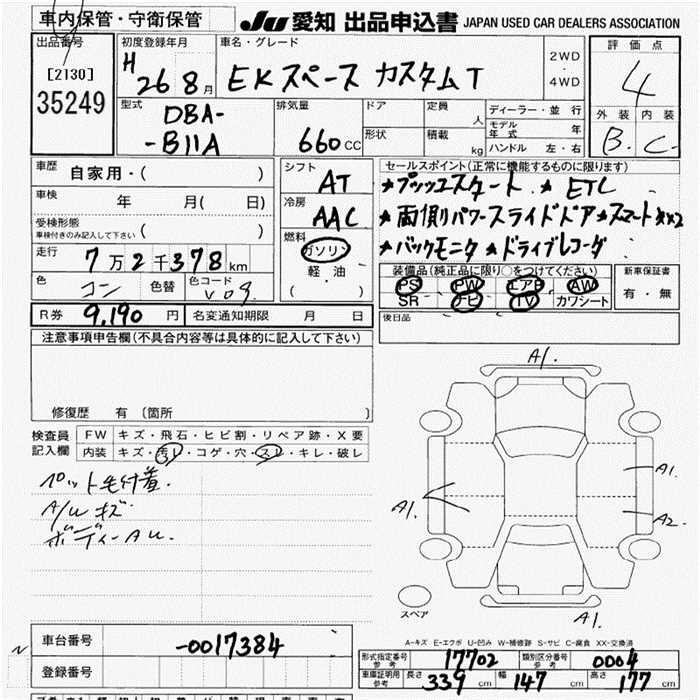 車内保管・守衛保管
JU 愛知 出品申込書 JAPAN USED CAR DEALERS ASSOCIATION
出品番号
[2130]
35249
初度登録年月
H 26 8月
車名・グレード
EKスペース カスタムT
2WD
・
4WD
評価点
4
外装 内装
B. C.
型式
DBA-
-B11A
排気量
660 CC
ドア
形状
定員 人
積載 kg
ディーラー・並行
モデル年式 年
ハンドル 左・右
車歴 自家用・( )
車検 年 月( 日)
受検形態
車検付きのみ記入して下さい ( )
走行 7万2千378km
色 コン 色替 色コード V09.
シフト AT
冷房 AAC
燃料 ガソリン
軽油
( )
セールスポイント(正常に機能するものに限ります)
★プッシュスタート ★ETC
★両側パワースライドドア★スマートキー×2
★バックモニタ ★ドライブレコーダ
装備品(純正品に限り○をつけてください)
PS PW エアB AW
SR ナビ TV カワシート
新車保証書
有・無
R券 9,190 円 名変通知期限 月 日
後日品
注意事項申告欄(不具合内容等は具体的に記入して下さい)
修復歴 有 〔箇所 〕
検査員
記入欄
FW キズ・飛石・ヒビ割・リペア跡・X要
内装 キズ・汚レ・コゲ・穴・スレ・キレ・破レ
ペット毛付着.
A/W キズ.
ボディーAU.
A1.
A1.
A1.
A2.
A1.
スペア
A-キズ E-エクボ U-凹み W-補修跡 S-サビ C-腐食 XX-交換済
車台番号 -0017384
登録番号
形式指定番号 参考 17702 類別区分番号 参考 0004
車庫証明用 参考 長さ 339 cm 幅 147 cm 高さ 177 cm